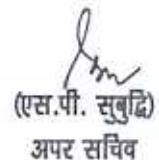 (एस.पी. सुबुद्धि)
अपर सचिव